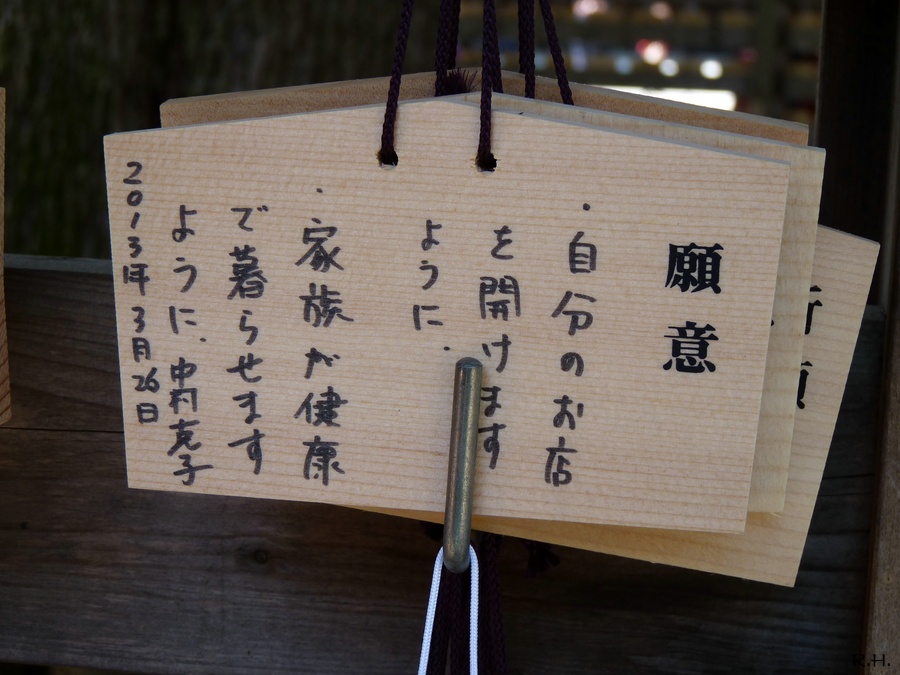 願意
・自分のお店
を開けます
ように.
・家族が健康
で暮らせます
ように.中村克子
2013年3月26日
願
R.H.